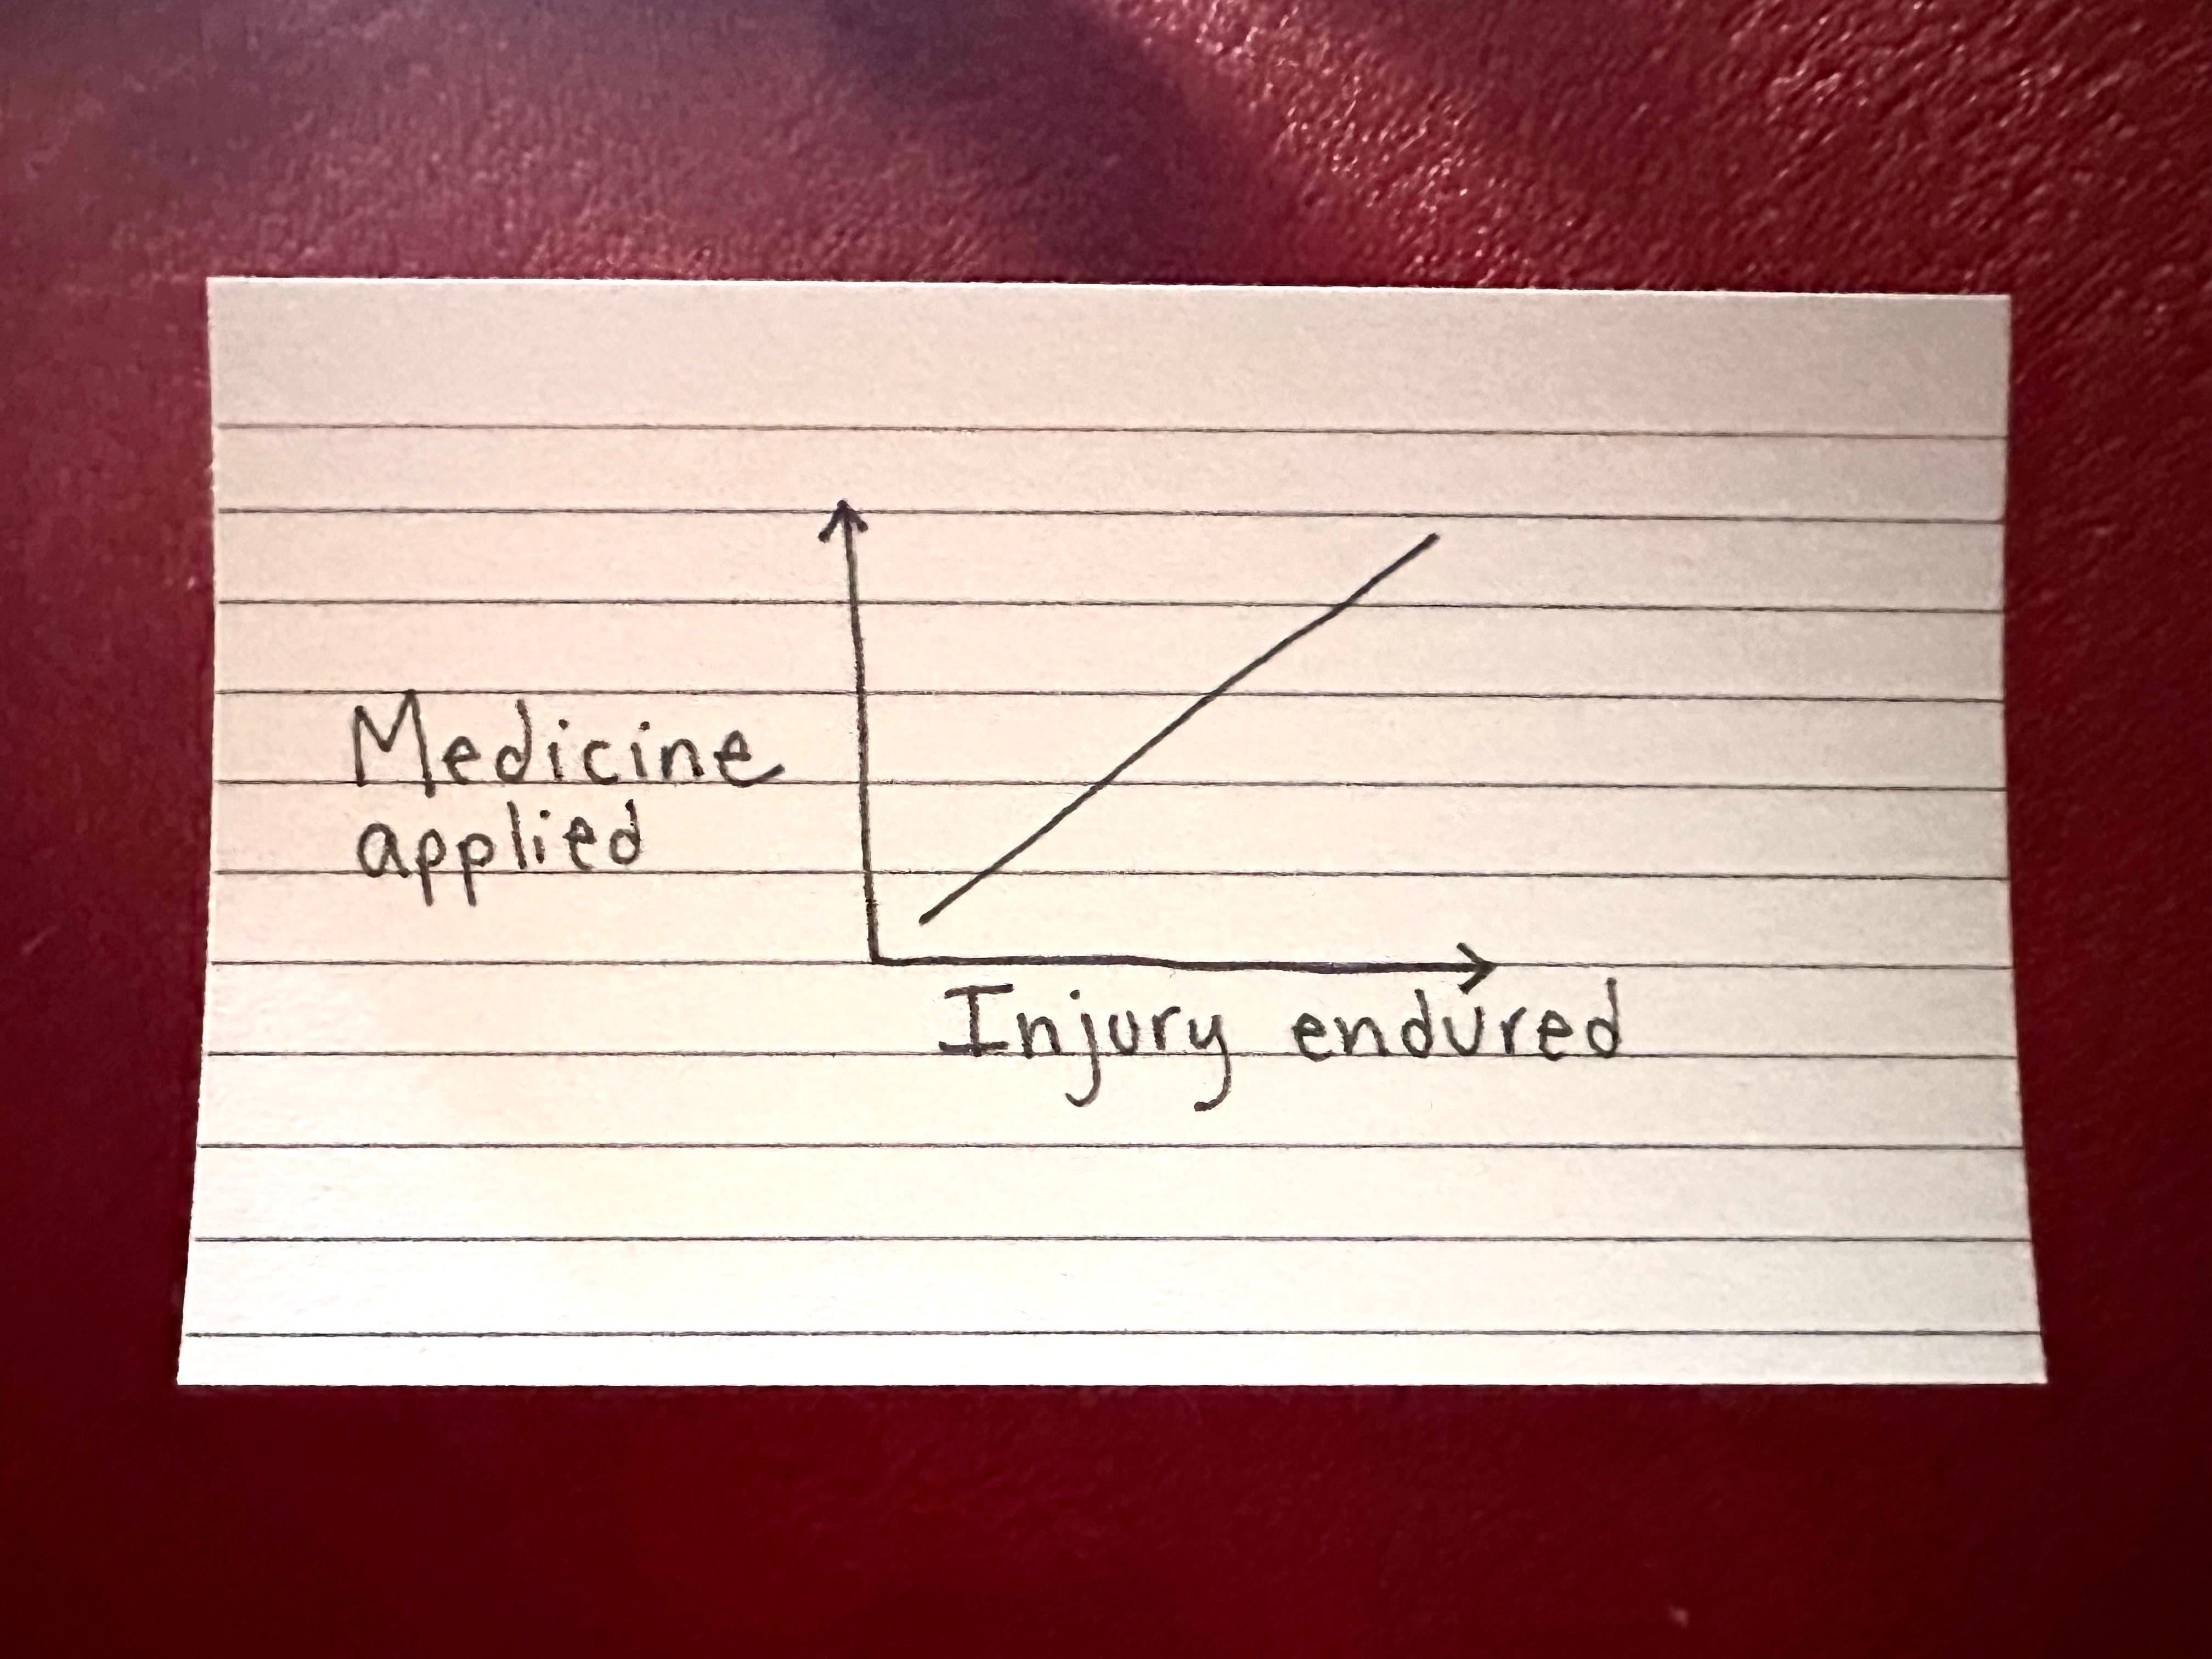 Medicine
applied
Injury endured